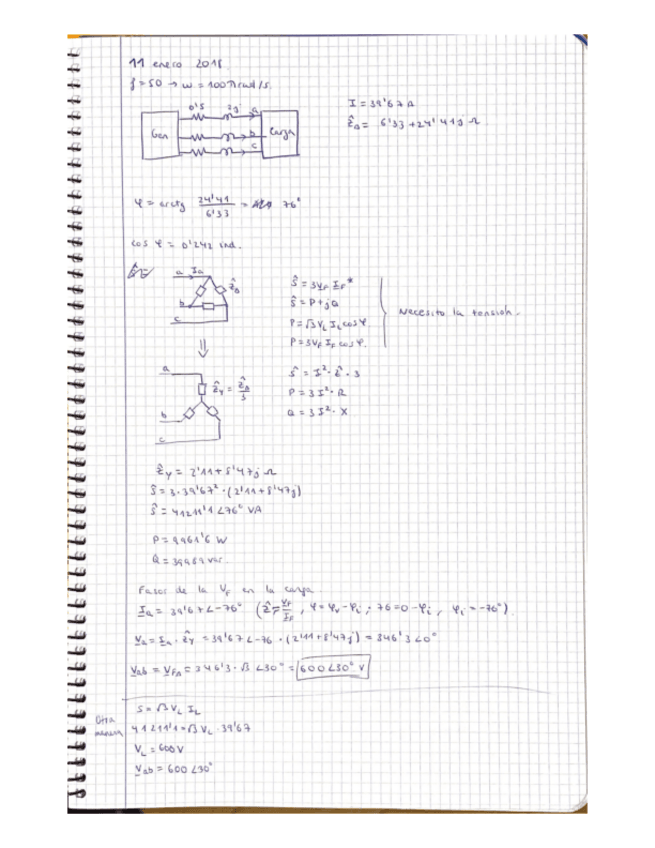 11 enero 2018
f = 50 → w = 100π rad/s.
0'5 2j a
Gen b Carga
c
I = 39'67 A
Ẑ_Δ = 6'33 + 24'41j Ω
φ = arctg 24'41 / 6'33 = 76°
cos φ = 0'242 ind.
a Ia
Ẑ_Δ
b
c
Ŝ = 3 V_F I_F*
Ŝ = P + jQ
P = √3 V_L I_L cos φ
P = 3 V_F I_F cos φ.
Necesito la tensión.
⇓
a
Ẑ_Y = Ẑ_Δ / 3
b
c
Ŝ = I² · Ẑ · 3
P = 3 I² · R
Q = 3 I² · X
Ẑ_Y = 2'11 + 8'47j Ω
Ŝ = 3 · 39'67² · (2'11 + 8'47j)
Ŝ = 41211'1 ∠76° VA
P = 9961'6 W
Q = 39989 var.
Fasor de la V_F en la carga.
I_a = 39'67 ∠-76° (Ẑ = V_F / I_F , φ = φ_v - φ_i ; 76 = 0 - φ_i , φ_i = -76°)
V_a = I_a · Ẑ_Y = 39'67 ∠-76 · (2'11 + 8'47j) = 346'3 ∠0°
V_ab = V_FΔ = 346'3 · √3 ∠30° = 600 ∠30° V
Otra manera
S = √3 V_L I_L
41211'1 = √3 V_L · 39'67
V_L = 600 V
V_ab = 600 ∠30°